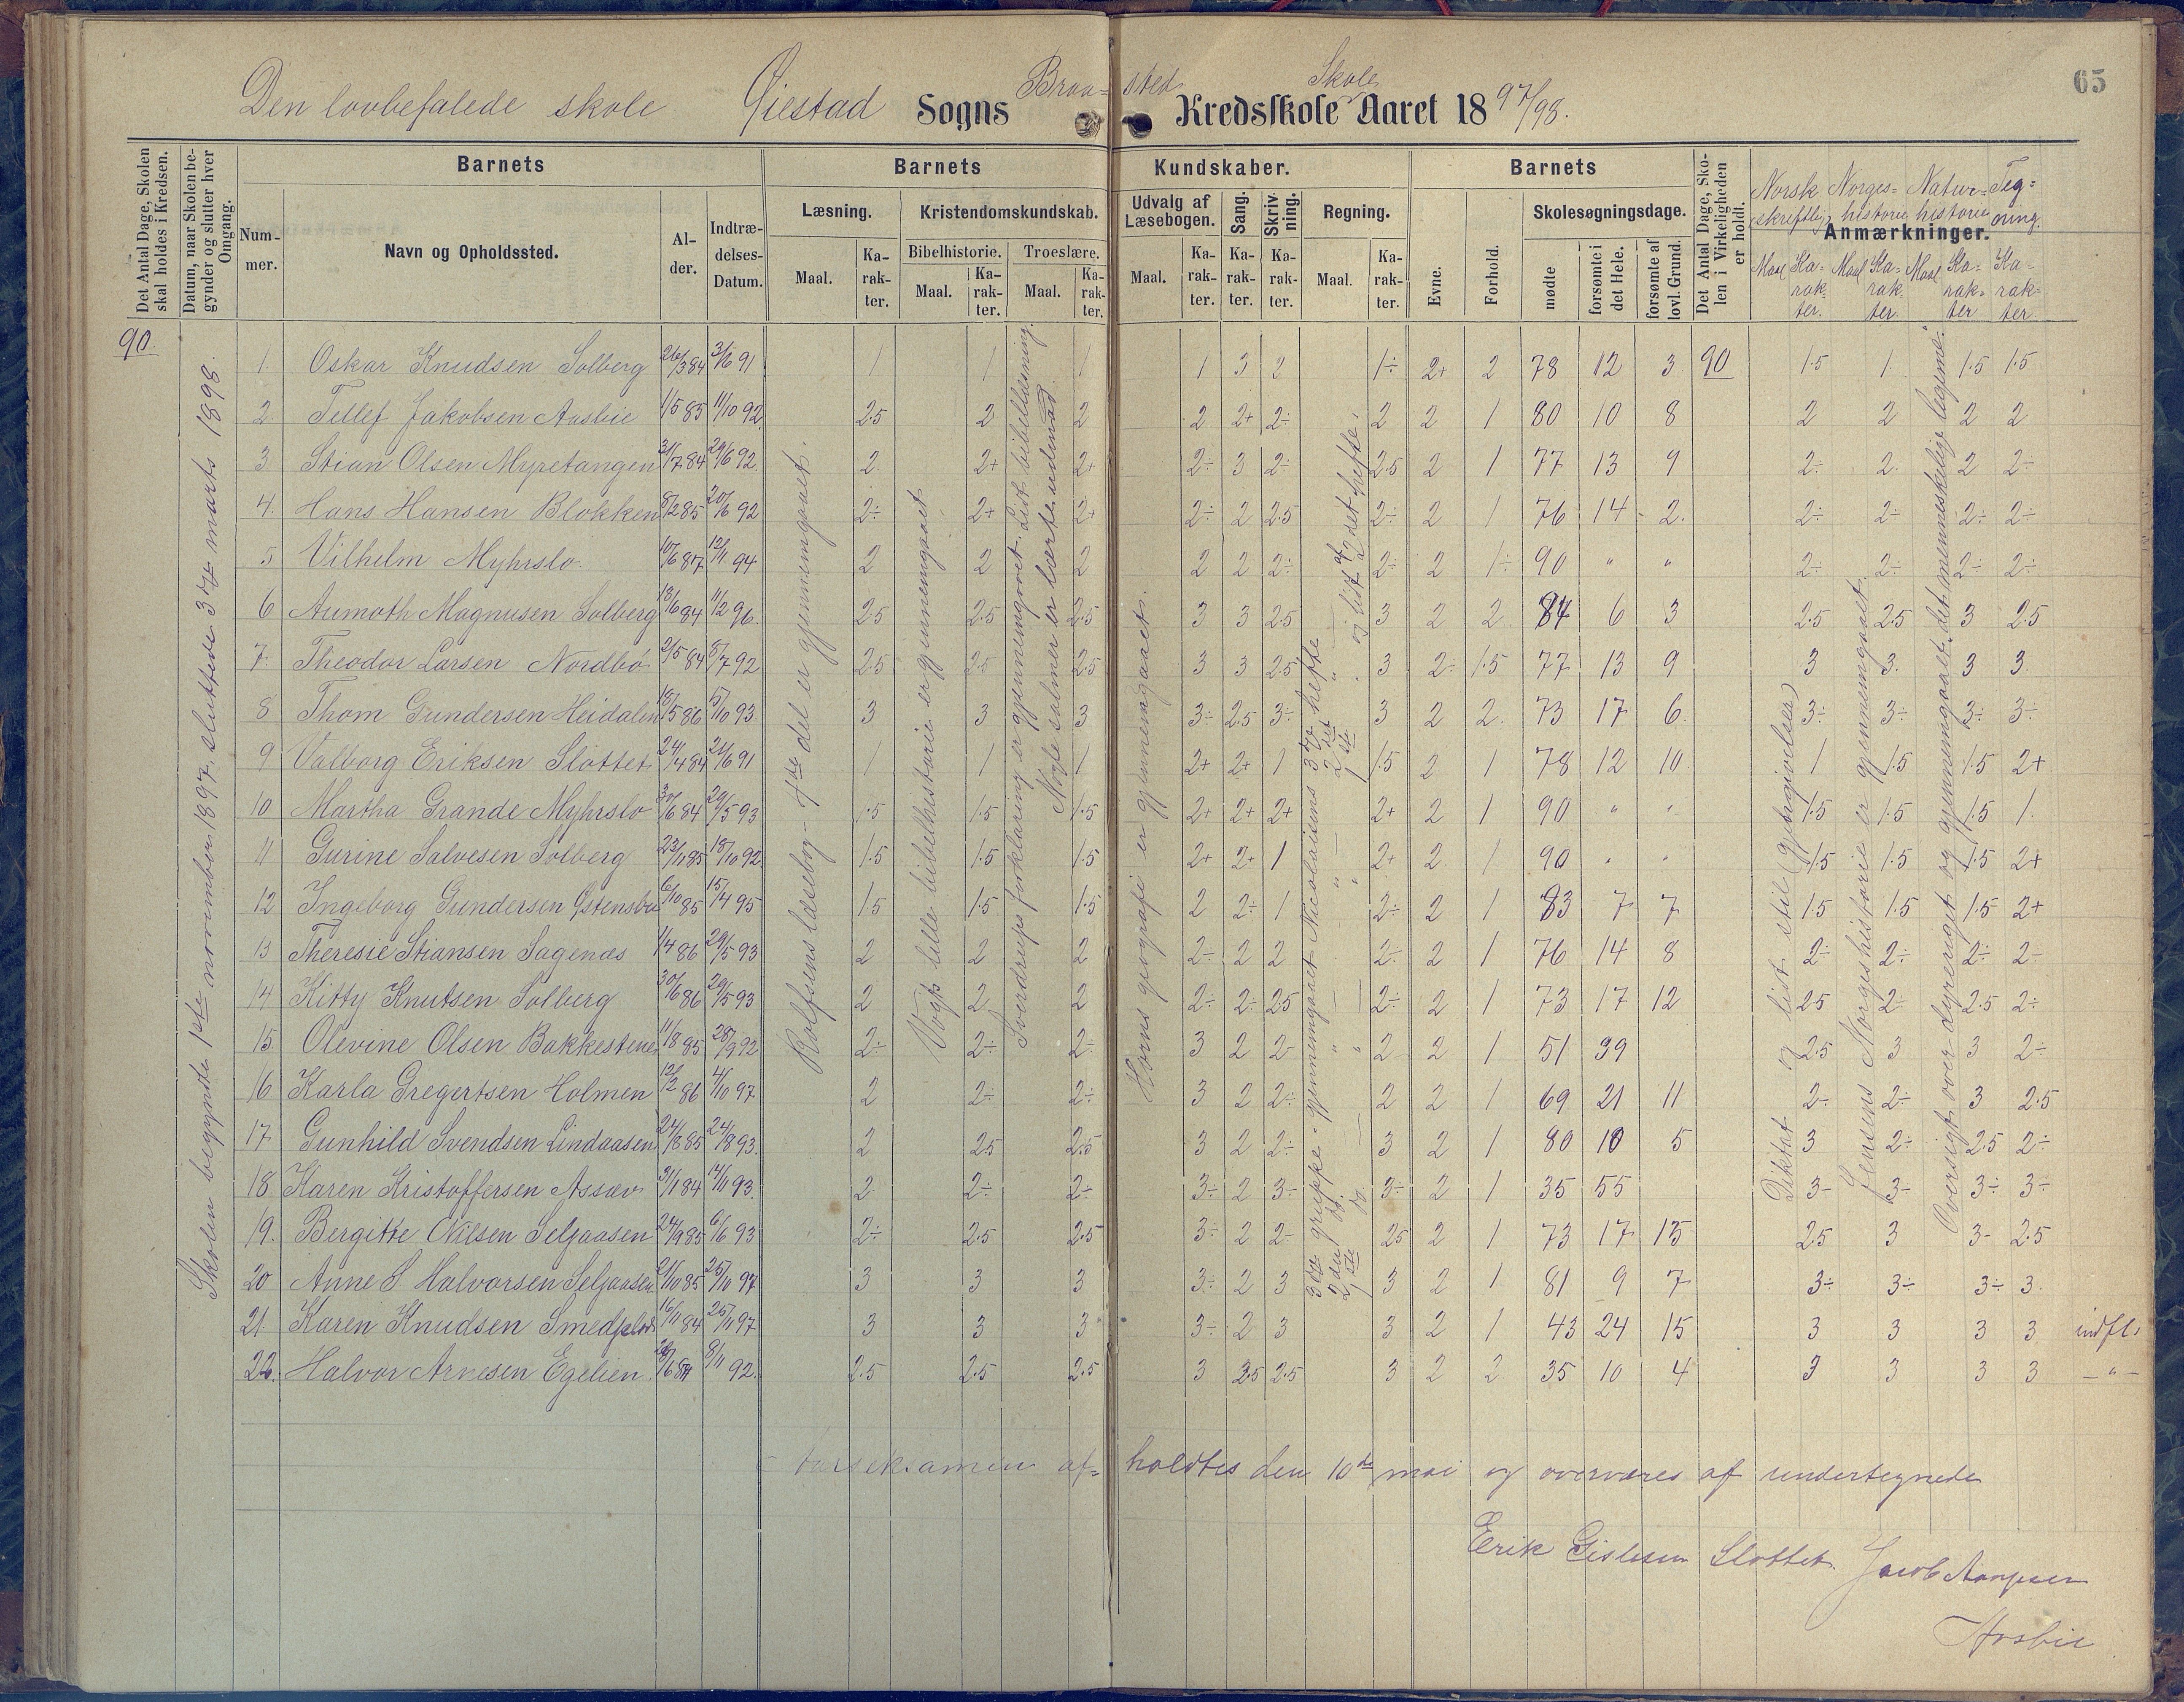 65
Den lovbefalede skole Øiestad Sogns Braa-sted Skole Kredsskole Aaret 1897/98.
Det Antal Dage, Skolen skal holdes i Kredsen.
Datum, naar Skolen begynder og slutter hver Omgang.
Barnets
Barnets
Kundskaber.
Barnets
Det Antal Dage, Skolen i Virkeligheden er holdt.
Anmærkninger.
Nummer.
Navn og Opholdssted.
Alder.
Indtrædelses-Datum.
Læsning.
Kristendomskundskab.
Bibelhistorie.
Troeslære.
Udvalg af Læsebogen.
Sang.
Skrivning.
Regning.
Evne.
Forhold.
Skolesøgningsdage.
mødte
forsømte i det Hele.
forsømte af lovl. Grund.
Maal. Karakter. Maal. Karakter. Maal. Karakter. Maal. Karakter. Karakter. Karakter. Maal. Karakter.
Norsk skriftlig Norges-historie Natur-historie Tegning.
Maal Karakter. Maal Karakter. Maal Karakter Karakter
90.
Skolen begyndte 1ste november 1897, sluttede 3die marts 1898.
1. Oskar Knudsen Solberg 26/3 84 3/6 91 1 1 1 1 3 2 1÷ 2+ 2 78 12 3 90 1.5 1. 1.5 1.5
2. Tellef Jakobsen Aasbie 1/5 85 11/10 92. 2.5 2 2 2 2+ 2÷ 2 2 1 80 10 8 2 2 2 2
3. Stian Olsen Myretangen 31/7 84 29/6 92. 2 2+ 2+ 2÷ 3 2÷ 2.5 2 1 77 13 9 2÷ 2. 2 2÷
4. Hans Hansen Blokken 8/2 85 20/6 92 2÷ 2+ 2+ 2÷ 2 2.5 2÷ 2 1 76 14 2. 2÷ 2÷ 2÷ 2÷
5 Vilhelm Myhrslo. 10/6 87 12/11 94 2 2 2 2 2 2÷ 2÷ 2 1÷ 90 " " 2÷ 2÷ 2÷ 2÷
6 Aumoth Magnusen Solberg 13/6 84 11/2 96. 2.5 2.5 2.5 3 3 2.5 3 2 2 84 6 3 2.5 2.5 3 2.5
7. Theodor Larsen Nordbø 2/5 84 5/7 92 2.5 2.5 2.5 3 3 2.5 3 2÷ 1.5 77 13 9 3 3. 3 3.
8 Thom Gundersen Heidalen 15/5 86 5/10 93 3 3 3 3÷ 2.5 3÷ 3 2 2. 73 17 6. 3÷ 3÷ 3÷ 3÷
9 Valborg Eriksen Slottet 24/4 84 21/6 91 1 1 1 2+ 2+ 1 1.5 2 1 78 12 10 1 1.5 1.5 2+
10 Martha Grande Myhrslo 30/6 84 29/5 93 1.5 1.5 1.5 2+ 2+ 2+ 2+ 2 1 90 " " 1.5 1.5 1.5 1.
11 Gurine Salvesen Solberg 23/11 85 18/10 92 1.5 1.5 1.5 2+ 2+ 1 2+ 2. 1 90 " " 1.5 1.5 1.5 2+
12 Ingeborg Gundersen Østensbu 6/10 85 15/4 95 1.5 1.5 1.5 2 2÷ 1 2÷ 2 1 83 7 7 1.5 1.5 1.5 2+
13 Theresie Stiansen Sagenæs 1/4 86 29/5 93 2 2 2 2÷ 2 2 2÷ 2 1 76 14 8 2÷ 2÷ 2÷ 2÷
14 Kitty Knutsen Solberg 30/6 86 29/5 93 2 2 2 2÷ 2÷ 2.5 2÷ 2 1 73 17 12 2.5 2÷ 2.5 2÷
15. Olevine Olsen Bakkestenen 11/8 85 28/9 92 2÷ 2÷ 2÷ 3 2 2÷ 2 2 1 51 39 2.5 3 3 2÷
16 Karla Gregertsen Holmen 12/2 86 4/10 97. 2 2÷ 2÷ 3 2 2÷ 2 2 1 69 21 11 2÷ 2÷ 3 2.5
17 Gunhild Svendsen Lindaasen 24/8 85 24/8 93. 2 2.5 2.5 3 2 2÷ 3 2 1 80 10 5 3 2÷ 2.5 2÷
18 Karen Kristoffersen Assæv 31/1 84 14/11 93. 2 2÷ 2÷ 3÷ 2 3÷ 3÷ 2 1 35 55 3÷ 3÷ 3÷ 3÷
19. Bergitte Nilsen Seljaasen 24/9 85 6/6 93 2÷ 2.5 2.5 3÷ 2 2÷ 2.5 2 1 73 17 15 2.5 3 3÷ 2.5
20 Anne S Halvorsen Seljaasen 21/10 85 25/11 97 3 3 3 3÷ 2 3 3 2 1 81 9 7 3÷ 3÷ 3÷ 3.
21 Karen Knudsen 16/11 84 25/11 97 3 3 3 3÷ 2 3 3 2 1 43 24 15 3 3 3 3 indfl:
22. Halvor Arnesen Egelien 8/11 92. 2.5 2.5 2.5 3 3.5 2.5 3 2 2 35 10 4 3 3 3 3 — " —
Rolfsens læsebog – 4de del er gjennemgaaet.
Vogts lille bibelhistorie er gjennemgaaet.
Sverdrups forklaring er gjennemgaaet. Læst bibelldening.
Nogle salmer er lært udenad.
Horns geografi er gjennemgaaet.
3die gruppe gjennemgaaet Nicolaisens 3die hefte og lidt af 2det hefte.
2den do. — " — " — 2det " "
1ste do. — " — " — 1ste
Diktat og let stil (gjengivelse)
Jensens Norgeshistorie er gjennemgaaet.
Oversigt over dyreriget og gjennemgaaet det menneskelige legeme.
Aarseksamen af-holdtes den 10de mai og overværes af undertegnede
Erik Gislesen Slottet. Jacob
Aasbie